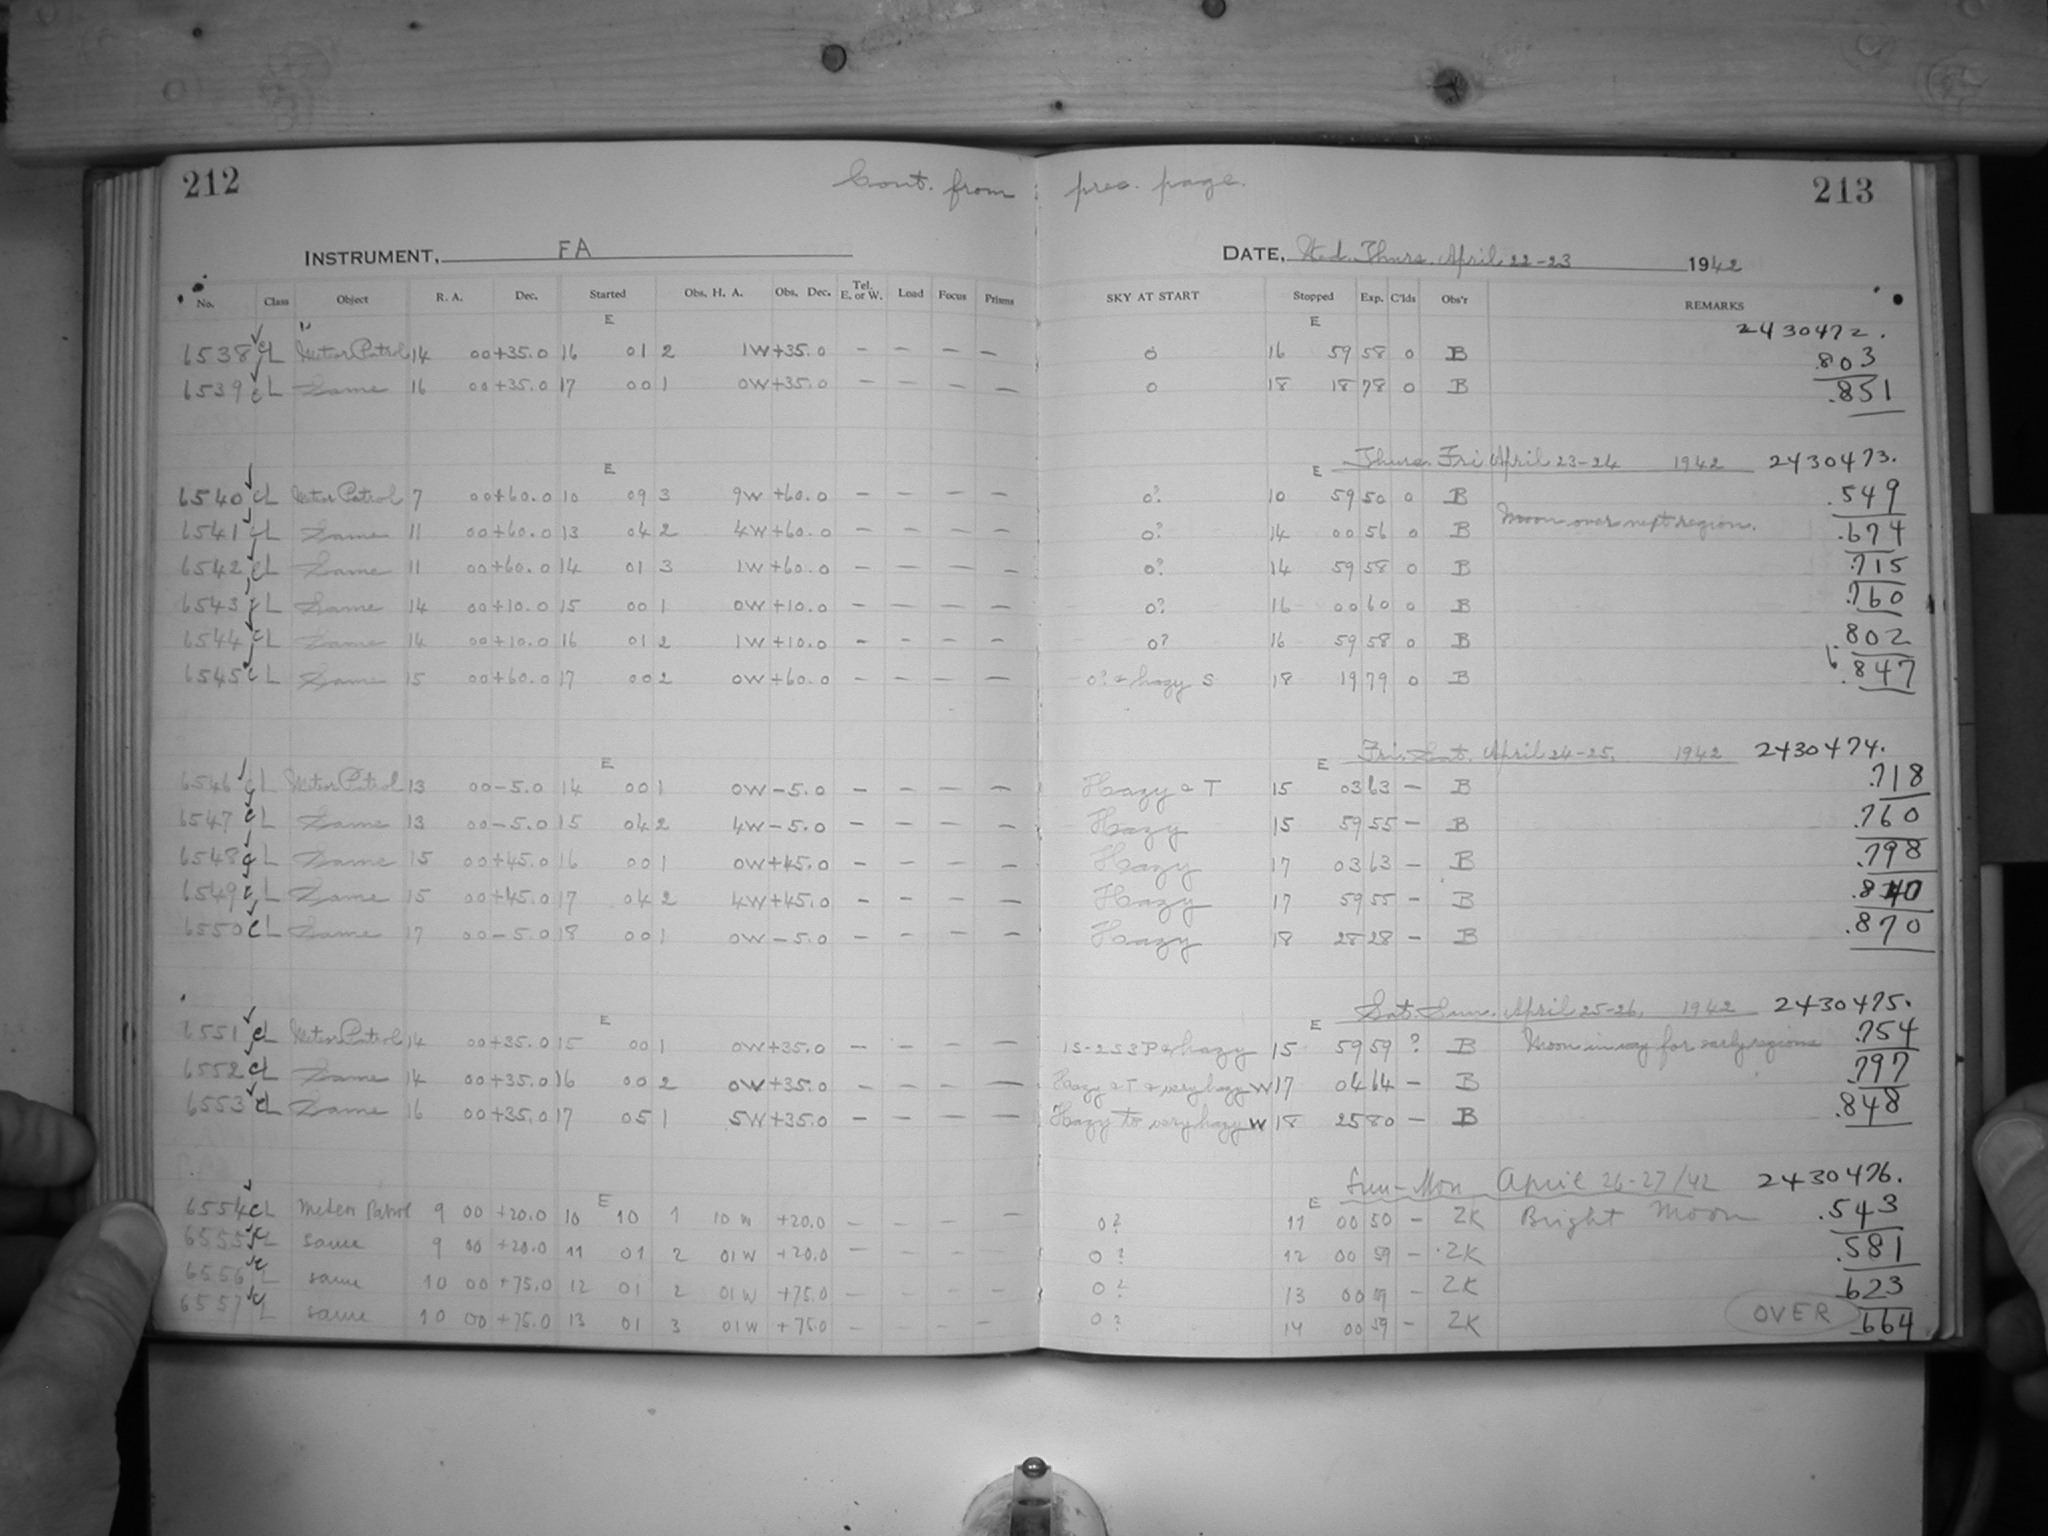 212 Cont. from prec. page. 213
INSTRUMENT, FA DATE, Wed. Thurs. April 22-23 1942
No. Class Object R. A. Dec. Started Obs. H. A. Obs. Dec. Tel. E. or W. Load Focus Prisms SKY AT START Stopped Exp. C'lds Obs'r REMARKS
E E 2430472.
6538 CL Meteor Patrol 14 00 +35.0 16 01 2 1W +35.0 – – – – 0 16 59 58 0 B .803
6539 CL Same 16 00 +35.0 17 00 1 0W +35.0 – – – – 0 18 18 78 0 B .851
E E Thurs. Fri April 23-24 1942 2430473.
6540 CL Meteor Patrol 7 00 +60.0 10 09 3 9W +60.0 – – – – 0? 10 59 50 0 B .549
Moon over next region.
6541 CL Same 11 00 +60.0 13 04 2 4W +60.0 – – – – 0? 14 00 56 0 B .674
6542 CL Same 11 00 +60.0 14 01 3 1W +60.0 – – – – 0? 14 59 58 0 B .715
6543 CL Same 14 00 +10.0 15 00 1 0W +10.0 – – – – 0? 16 00 60 0 B .760
6544 CL Same 14 00 +10.0 16 01 2 1W +10.0 – – – – 0? 16 59 58 0 B .802
6545 CL Same 15 00 +60.0 17 00 2 0W +60.0 – – – – 0? & hazy S 18 19 79 0 B .847
E E Fri. Sat. April 24-25, 1942 2430474.
6546 CL Meteor Patrol 13 00 –5.0 14 00 1 0W –5.0 – – – – Hazy & T 15 03 63 – B .718
6547 CL Same 13 00 –5.0 15 04 2 4W –5.0 – – – – Hazy 15 59 55 – B .760
6548 CL Same 15 00 +45.0 16 00 1 0W +45.0 – – – – Hazy 17 03 63 – B .798
6549 CL Same 15 00 +45.0 17 04 2 4W +45.0 – – – – Hazy 17 59 55 – B .840
6550 CL Same 17 00 –5.0 18 00 1 0W –5.0 – – – – Hazy 18 28 28 – B .870
E E Sat. Sun. April 25-26, 1942 2430475.
6551 CL Meteor Patrol 14 00 +35.0 15 00 1 0W +35.0 – – – – 15-25 SP & hazy 15 59 59 ? B Moon in way for early regions .754
6552 CL Same 14 00 +35.0 16 00 2 0W +35.0 – – – – Hazy & T & very hazy W 17 04 64 – B .797
6553 CL Same 16 00 +35.0 17 05 1 5W +35.0 – – – – Hazy to very hazy W 18 25 80 – B .848
E E Sun-Mon April 26-27/42 2430476.
6554 CL Meteor Patrol 9 00 +20.0 10 10 1 10W +20.0 – – – – 0? 11 00 50 – ZK Bright Moon .543
6555 CL same 9 00 +20.0 11 01 2 01W +20.0 – – – – 0? 12 00 59 – ZK .581
6556 CL same 10 00 +75.0 12 01 2 01W +75.0 – – – – 0? 13 00 59 – ZK .623
6557 CL same 10 00 +75.0 13 01 3 01W +75.0 – – – – 0? 14 00 59 – ZK OVER .664